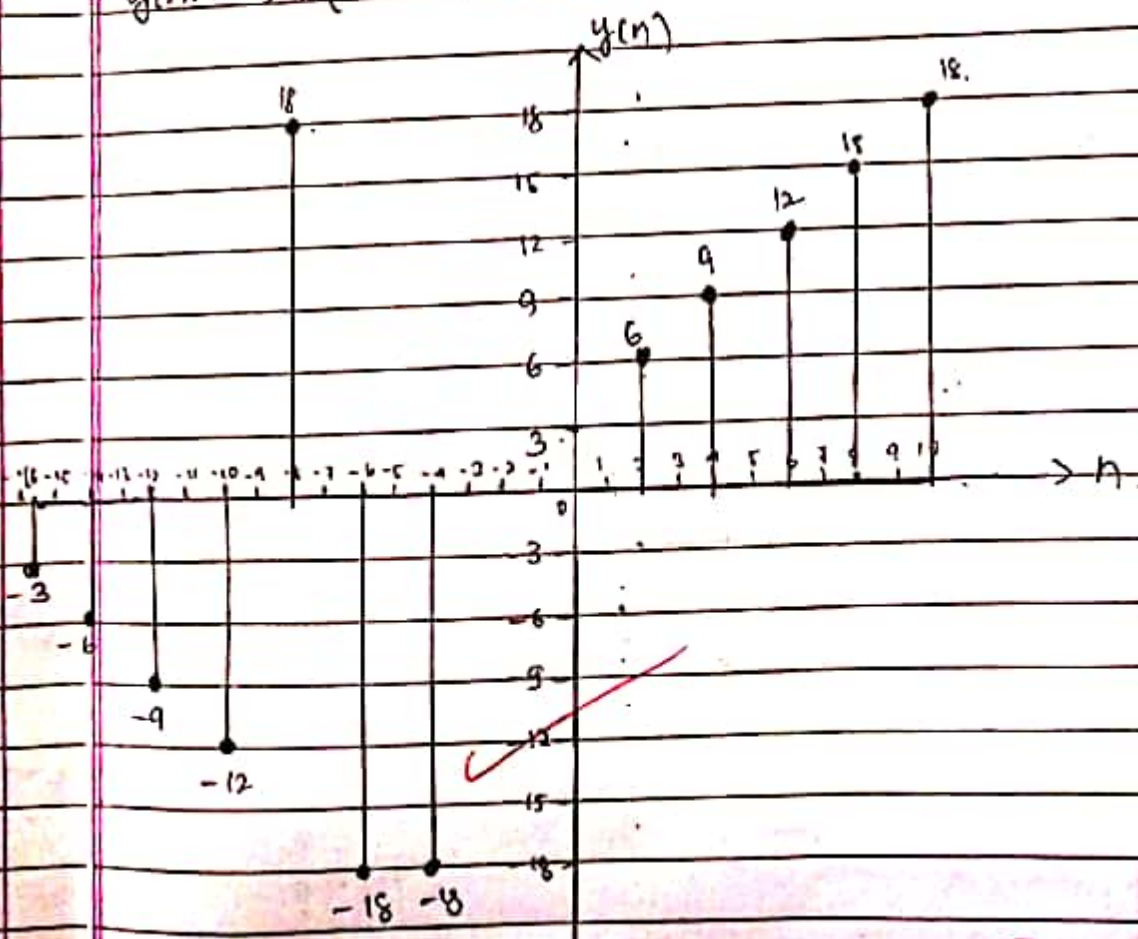 y(n)
18
18.
18
15
15
12
12
9
9
6
6
3
-16 -15 -13 -12 -11 -10 -9 -8 -7 -6 -5 -4 -3 -2 -1 1 2 3 4 5 6 7 8 9 10
→ n
0
-3
-3
-6
-6
-9
-9
-12
-12
-15
-18
-18 -18